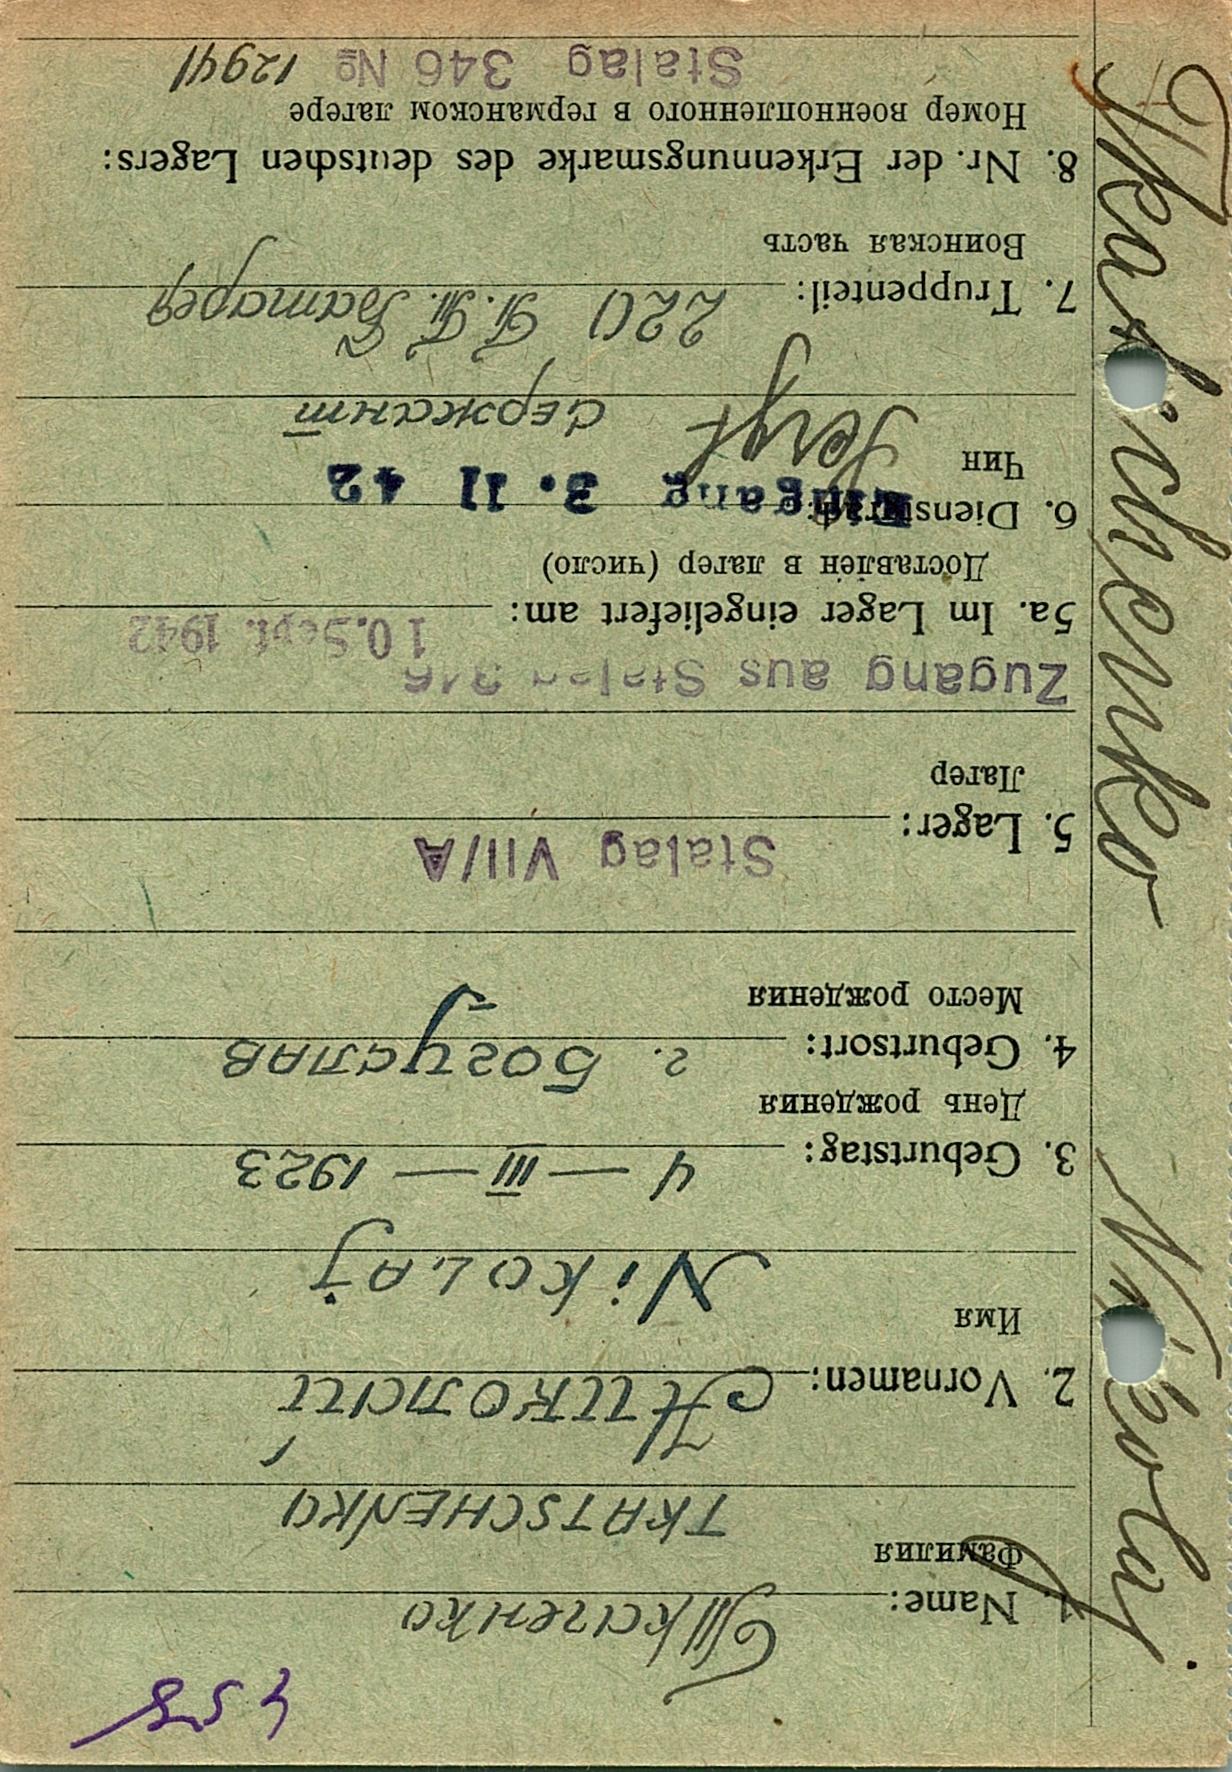 458
Ткаченко
1. Name:
Фамилия
TKATSCHENKO
Николай
2. Vornamen:
Имя
NiKOLAJ
3. Geburtstag: 4 — III — 1923
День рождения
4. Geburtsort: г. Богуслав
Место рождения
Stalag VII/A
5. Lager:
Лагер
Zugang aus Stalag 346
5a. Im Lager eingeliefert am: 10. Sept. 1942
Доставлен в лагер (число)
6. Dienstgrad: Eingang 3. 11 42
Чин Sergt сержант
7. Truppenteil: 220 П. Т. Батарея
Воинская часть
8. Nr. der Erkennungsmarke des deutschen Lagers:
Номер военнопленного в германском лагере
Stalag 346 № 12941
Tkatschenko Nikolaj